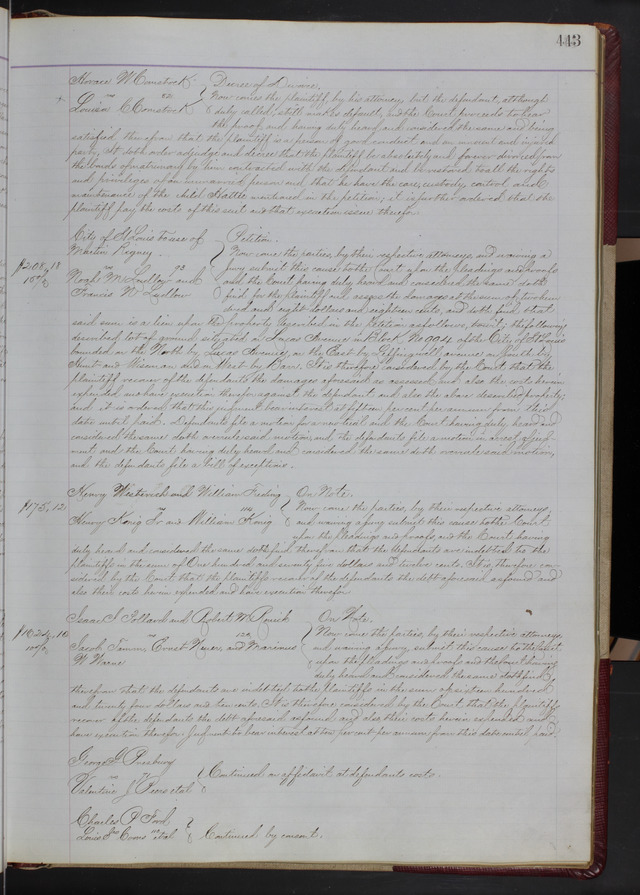 443
Horace W Comstock } Decree of Divorce.
vs
Louisa C Comstock } Now comes the plaintiff, by his attorney, but the defendant, although
duly called, still makes default, and the Court proceeds to hear
the proof and having duly heard and considered the same and being
satisfied therefrom that the plaintiff is a person of good conduct and an innocent and injured
party, It doth order adjudge and decree that the plaintiff be absolutely and forever divorced from
the bonds of matrimony by him contracted with the defendant and be restored to all the rights
and privileges of an unmarried person and that he have the care, custody, control and
maintenance of the child Hattie mentioned in the petition; it is further ordered that the
plaintiff pay the costs of this suit and that execution issue therefor.
City of St Louis to use of } Petition.
Martin Regney
vs
Noah M Ludlow and
Francis W Ludlow
$208.18
Now come the parties, by their respective attorneys, and waiving a
jury submit this cause to the Court upon the pleadings and proofs
and the Court having duly heard and considered the same doth
find for the plaintiff and assess the damages at the sum of two hun
dred and eight dollars and eighteen cents, and doth find that
said sum is a lien upon the property described in the Petition as follows, towit: the following
described lot of ground situated on Lucas Avenue in Block No 904 of the City of St Louis
bounded on the North by Lucas Avenue, on the East by Leffingwell avenue, on South by
Hunt and Wiseman and on West by Barr. It is therefore considered by the Court that the
plaintiff recover of the defendants the damages aforesaid as assessed, and also the costs herein
expended and have execution therefor against the defendant and also the above described property;
and it is ordered that this judgment bear interest at fifteen per cent per annum from this
date until paid. Defendants file a motion for a new trial and the Court having duly heard and
considered the same doth overrule said motion, and the defendants file a motion in arrest of judg
ment and the Court having duly heard and considered the same doth overrule said motion,
and the defendants file a bill of exceptions.
Henry Westerich and William Freding } On Note.
vs
Henry Konig Jr and William Konig
$175.12
Now come the parties, by their respective attorneys,
and waiving a jury submit this cause to the Court
upon the pleadings and proofs, and the Court having
duly heard and considered the same doth find therefrom that the defendants are indebted to the
plaintiffs in the sum of One hundred and seventy five dollars and twelve cents. It is therefore con
sidered by the Court that the plaintiffs recover of the defendants the debt aforesaid as found and
also their costs herein expended and have execution therefor.
Isaac S Pollard and Robert W } On Note.
vs
Jacob Tamm, Ernst Meier, and Marcus
W Warne
$1624.10
10%
Now come the parties, by their respective attorneys
and waiving a jury, submit this cause to the Court
upon the pleadings and proofs and the Court having
duly heard and considered the same doth find
therefrom that the defendants are indebted to the plaintiffs in the sum of sixteen hundred
and twenty four dollars and ten cents. It is therefore considered by the Court that the plaintiffs
recover of the defendants the debt aforesaid as found and also their costs herein expended and
have execution therefor. Judgment to bear interest at ten per cent per annum from this date until paid.
George G Presbury
vs
Valentine J Peers et al } Continued on affidavit at defendants costs.
Charles P Ford
vs
Louis et al } Continued by consent.